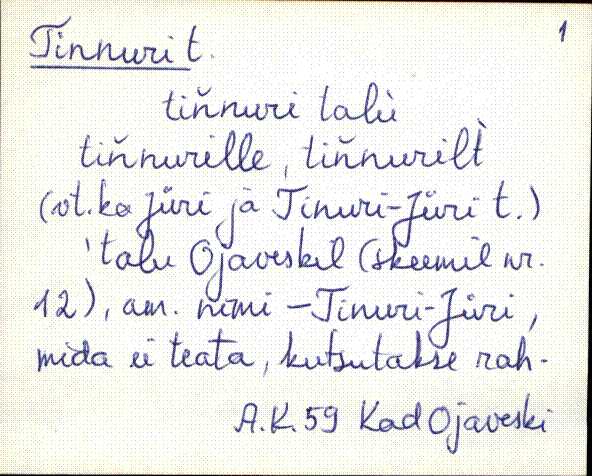 Tinnuri t. 1
tiňnuri talù
tiňnurille, tiňnurilt̀
(vt. ka Jüri ja Tinuri-Jüri t.)
'talu Ojaveskil (skeemil nr.
12), am. nimi - Tinuri-Jüri,
mida ei teata, kutsutakse rah-
A.K. 59 Kad Ojaveski